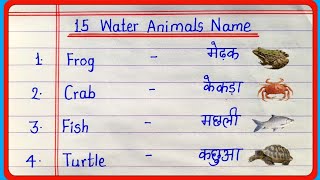 15 Water Animals Name
1. Frog - मेढ़क
2. Crab - केकड़ा
3. Fish - मछली
4. Turtle - कछुआ